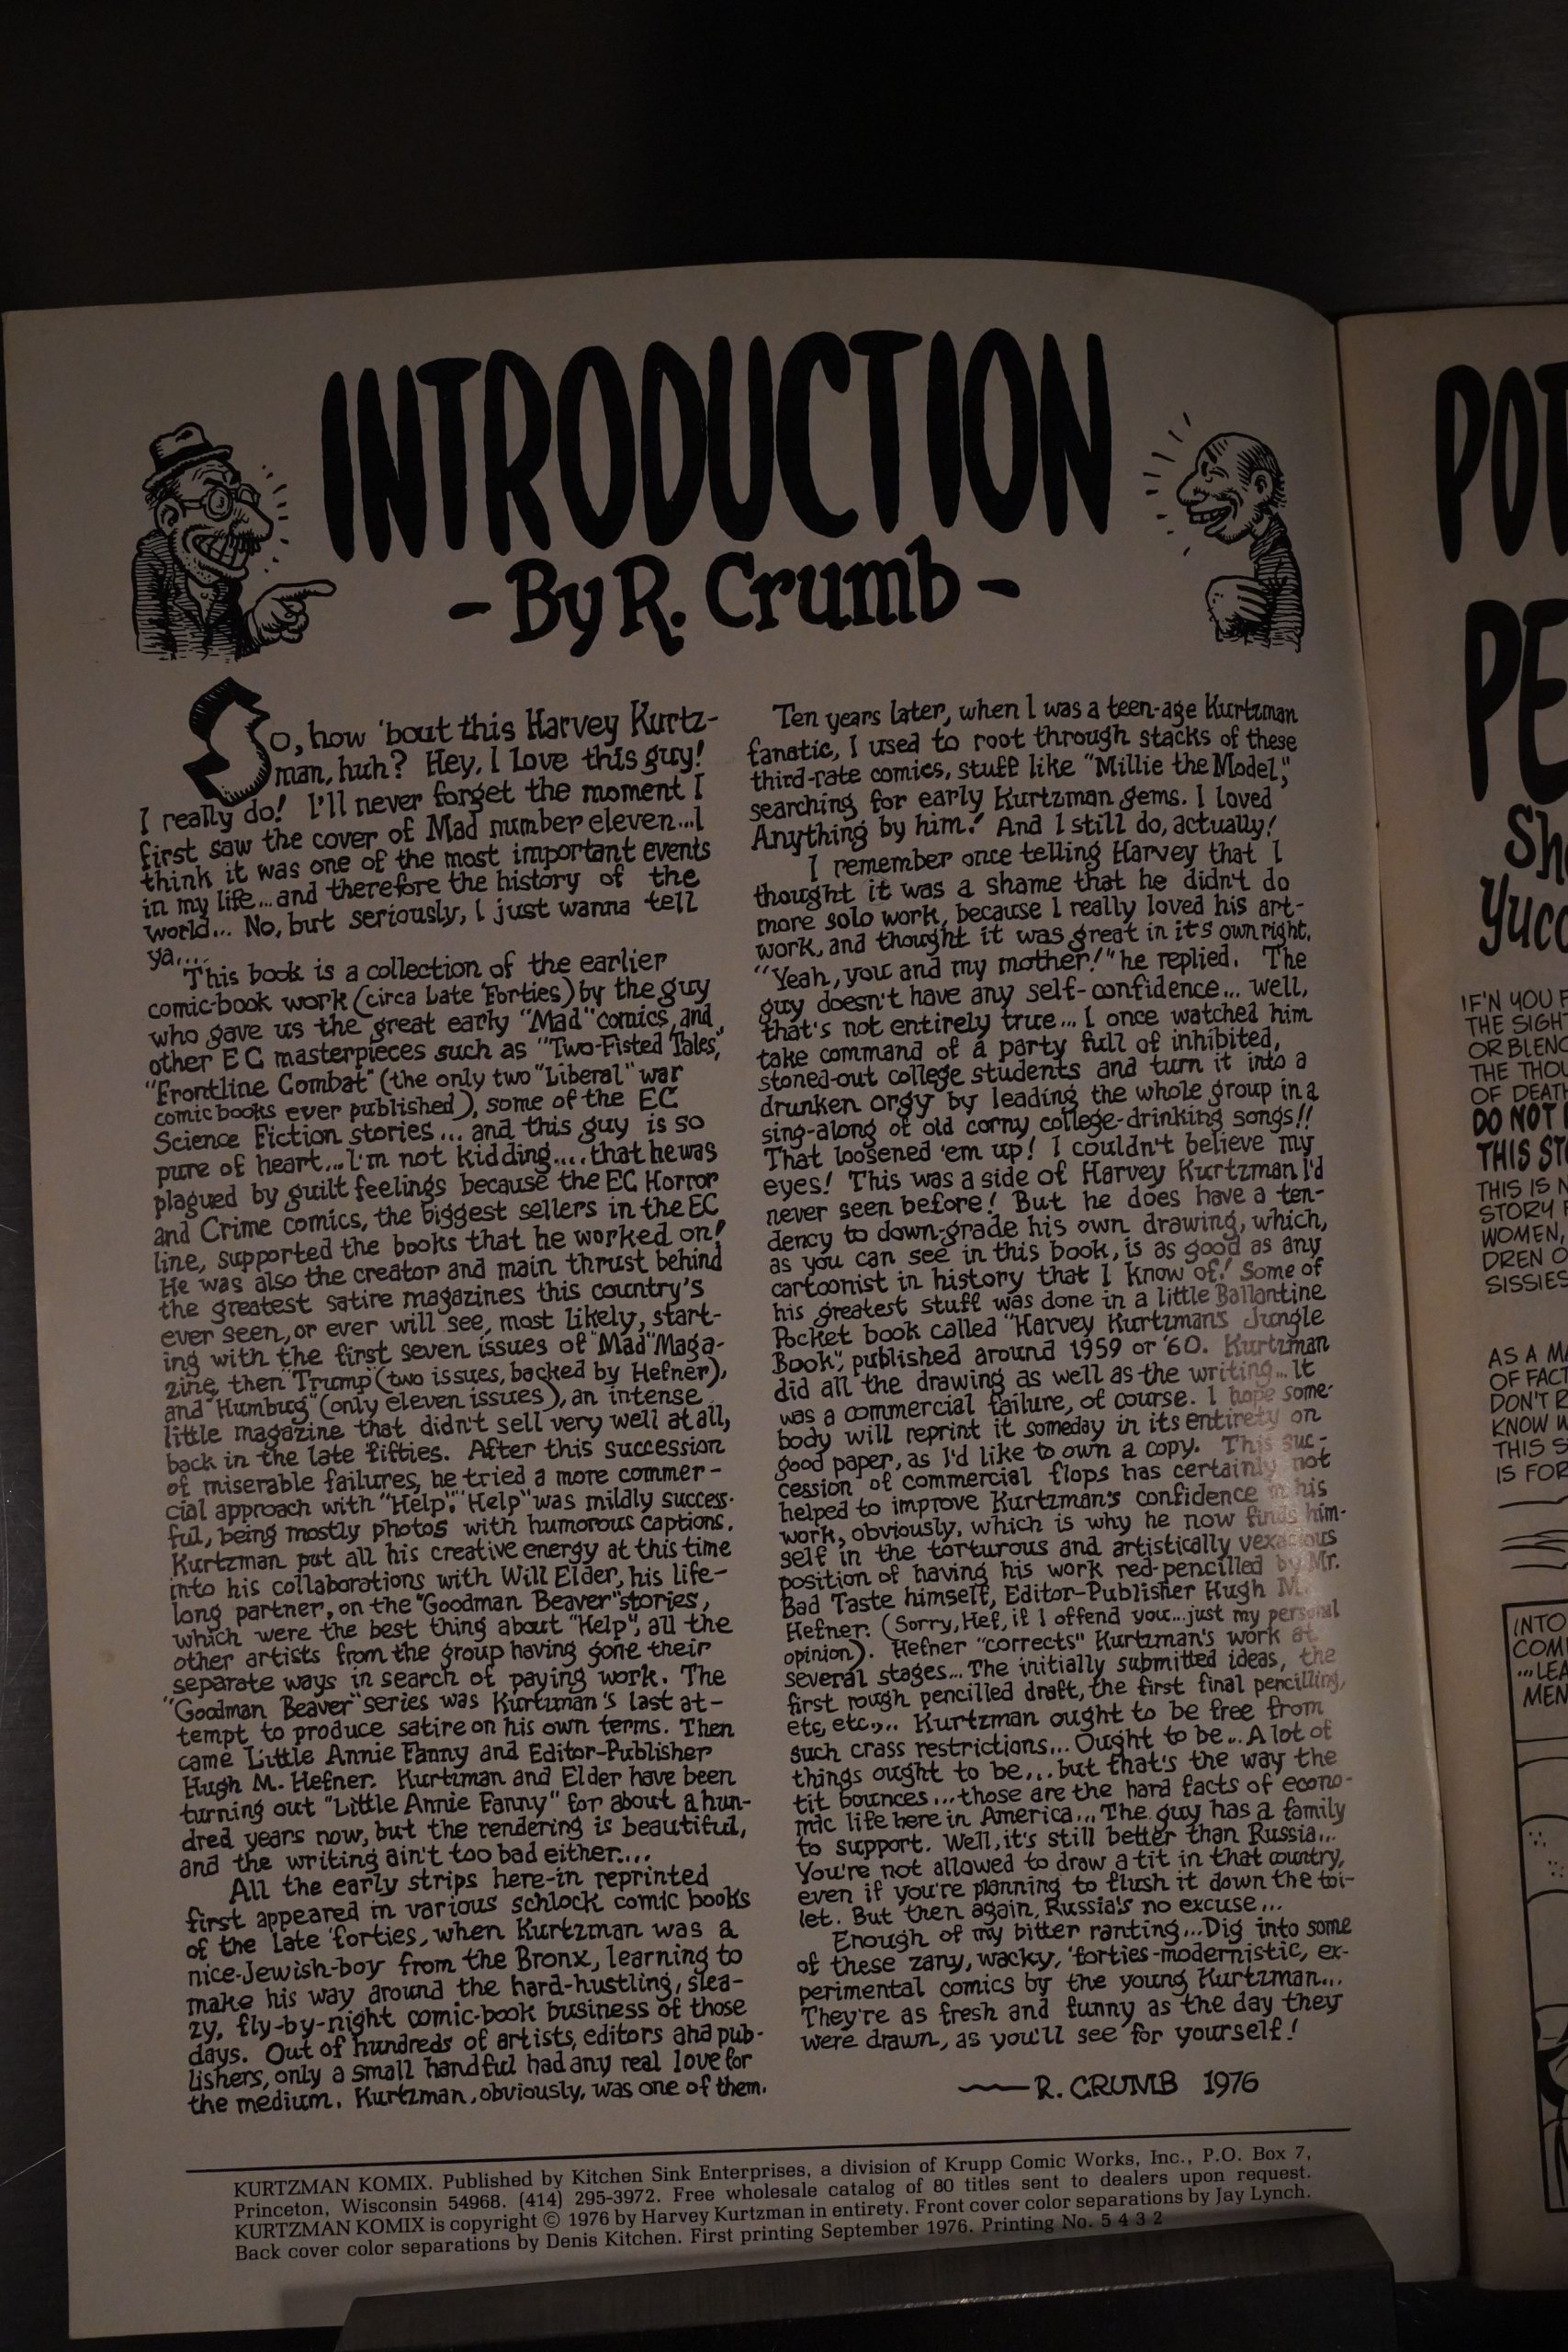 INTRODUCTION
- By R. Crumb -
So, how 'bout this Harvey Kurtz-
man, huh? Hey, I love this guy!
I really do! I'll never forget the moment I
first saw the cover of Mad number eleven...I
think it was one of the most important events
in my life...and therefore the history of the
world... No, but seriously, I just wanna tell
ya....
This book is a collection of the earlier
comic-book work (circa Late 'Forties) by the guy
who gave us the great early "Mad" comics, and
other EC masterpieces such as "Two-Fisted Tales,"
"Frontline Combat" (the only two "Liberal" war
comic books ever published), some of the EC
Science Fiction stories... and this guy is so
pure of heart...I'm not kidding....that he was
plagued by guilt feelings because the EC Horror
and Crime comics, the biggest sellers in the EC
line, supported the books that he worked on!
He was also the creator and main thrust behind
the greatest satire magazines this country's
ever seen, or ever will see, most likely, start-
ing with the first seven issues of "Mad" Maga-
zine, then "Trump" (two issues, backed by Hefner),
and "Humbug" (only eleven issues), an intense
little magazine that didn't sell very well at all,
back in the late 'fifties. After this succession
of miserable failures, he tried a more commer-
cial approach with "Help". "Help" was mildly success-
ful, being mostly photos with humorous captions.
Kurtzman put all his creative energy at this time
into his collaborations with Will Elder, his life-
long partner, on the "Goodman Beaver" stories,
which were the best thing about "Help", all the
other artists from the group having gone their
separate ways in search of paying work. The
"Goodman Beaver" series was Kurtzman's last at-
tempt to produce satire on his own terms. Then
came Little Annie Fanny and Editor-Publisher
Hugh M. Hefner. Kurtzman and Elder have been
turning out "Little Annie Fanny" for about a hun-
dred years now, but the rendering is beautiful,
and the writing ain't too bad either....
All the early strips here-in reprinted
first appeared in various schlock comic books
of the late 'forties, when Kurtzman was a
nice-Jewish-boy from the Bronx, learning to
make his way around the hard-hustling, slea-
zy, fly-by-night comic-book business of those
days. Out of hundreds of artists, editors and pub-
lishers, only a small handful had any real love for
the medium. Kurtzman, obviously, was one of them.
Ten years later, when I was a teen-age Kurtzman
fanatic, I used to root through stacks of these
third-rate comics, stuff like "Millie the Model,"
searching for early Kurtzman gems. I loved
Anything by him! And I still do, actually!
I remember once telling Harvey that I
thought it was a shame that he didn't do
more solo work, because I really loved his art-
work, and thought it was great in it's own right.
"Yeah, you and my mother!" he replied. The
guy doesn't have any self-confidence... well,
that's not entirely true... I once watched him
take command of a party full of inhibited,
stoned-out college students and turn it into a
drunken orgy by leading the whole group in a
sing-along of old corny college-drinking songs!!
That loosened 'em up! I couldn't believe my
eyes! This was a side of Harvey Kurtzman I'd
never seen before! But he does have a ten-
dency to down-grade his own drawing, which,
as you can see in this book, is as good as any
cartoonist in history that I know of! Some of
his greatest stuff was done in a little Ballantine
Pocket book called "Harvey Kurtzman's Jungle
Book", published around 1959 or '60. Kurtzman
did all the drawing as well as the writing... It
was a commercial failure, of course. I hope some-
body will reprint it someday in its entirety on
good paper, as I'd like to own a copy. This suc-
cession of commercial flops has certainly not
helped to improve Kurtzman's confidence in his
work, obviously, which is why he now finds him-
self in the torturous and artistically vexacious
position of having his work red-pencilled by Mr.
Bad Taste himself, Editor-Publisher Hugh M.
Hefner. (Sorry, Hef, if I offend you...just my personal
opinion). Hefner "corrects" Kurtzman's work at
several stages... The initially submitted ideas, the
first rough pencilled draft, the first final pencilling,
etc, etc... Kurtzman ought to be free from
such crass restrictions... Ought to be... A lot of
things ought to be... but that's the way the
tit bounces... those are the hard facts of econo-
mic life here in America... The guy has a family
to support. Well, it's still better than Russia...
You're not allowed to draw a tit in that country,
even if you're planning to flush it down the toi-
let. But then again, Russia's no excuse...
Enough of my bitter ranting...Dig into some
of these zany, wacky, 'forties-modernistic, ex-
perimental comics by the young Kurtzman...
They're as fresh and funny as the day they
were drawn, as you'll see for yourself!
R. CRUMB 1976
KURTZMAN KOMIX. Published by Kitchen Sink Enterprises, a division of Krupp Comic Works, Inc., P.O. Box 7,
Princeton, Wisconsin 54968. (414) 295-3972. Free wholesale catalog of 80 titles sent to dealers upon request.
KURTZMAN KOMIX is copyright © 1976 by Harvey Kurtzman in entirety. Front cover color separations by Jay Lynch.
Back cover color separations by Denis Kitchen. First printing September 1976. Printing No. 5 4 3 2
POT
PE
Sh
Yucc
IF'N YOU F
THE SIGHT
OR BLEND
THE THOU
OF DEATH
DO NOT
THIS ST
THIS IS N
STORY F
WOMEN,
DREN O
SISSIES
AS A MA
OF FACT
DON'T R
KNOW W
THIS S
IS FOR
INTO
COM
...LEA
MEN